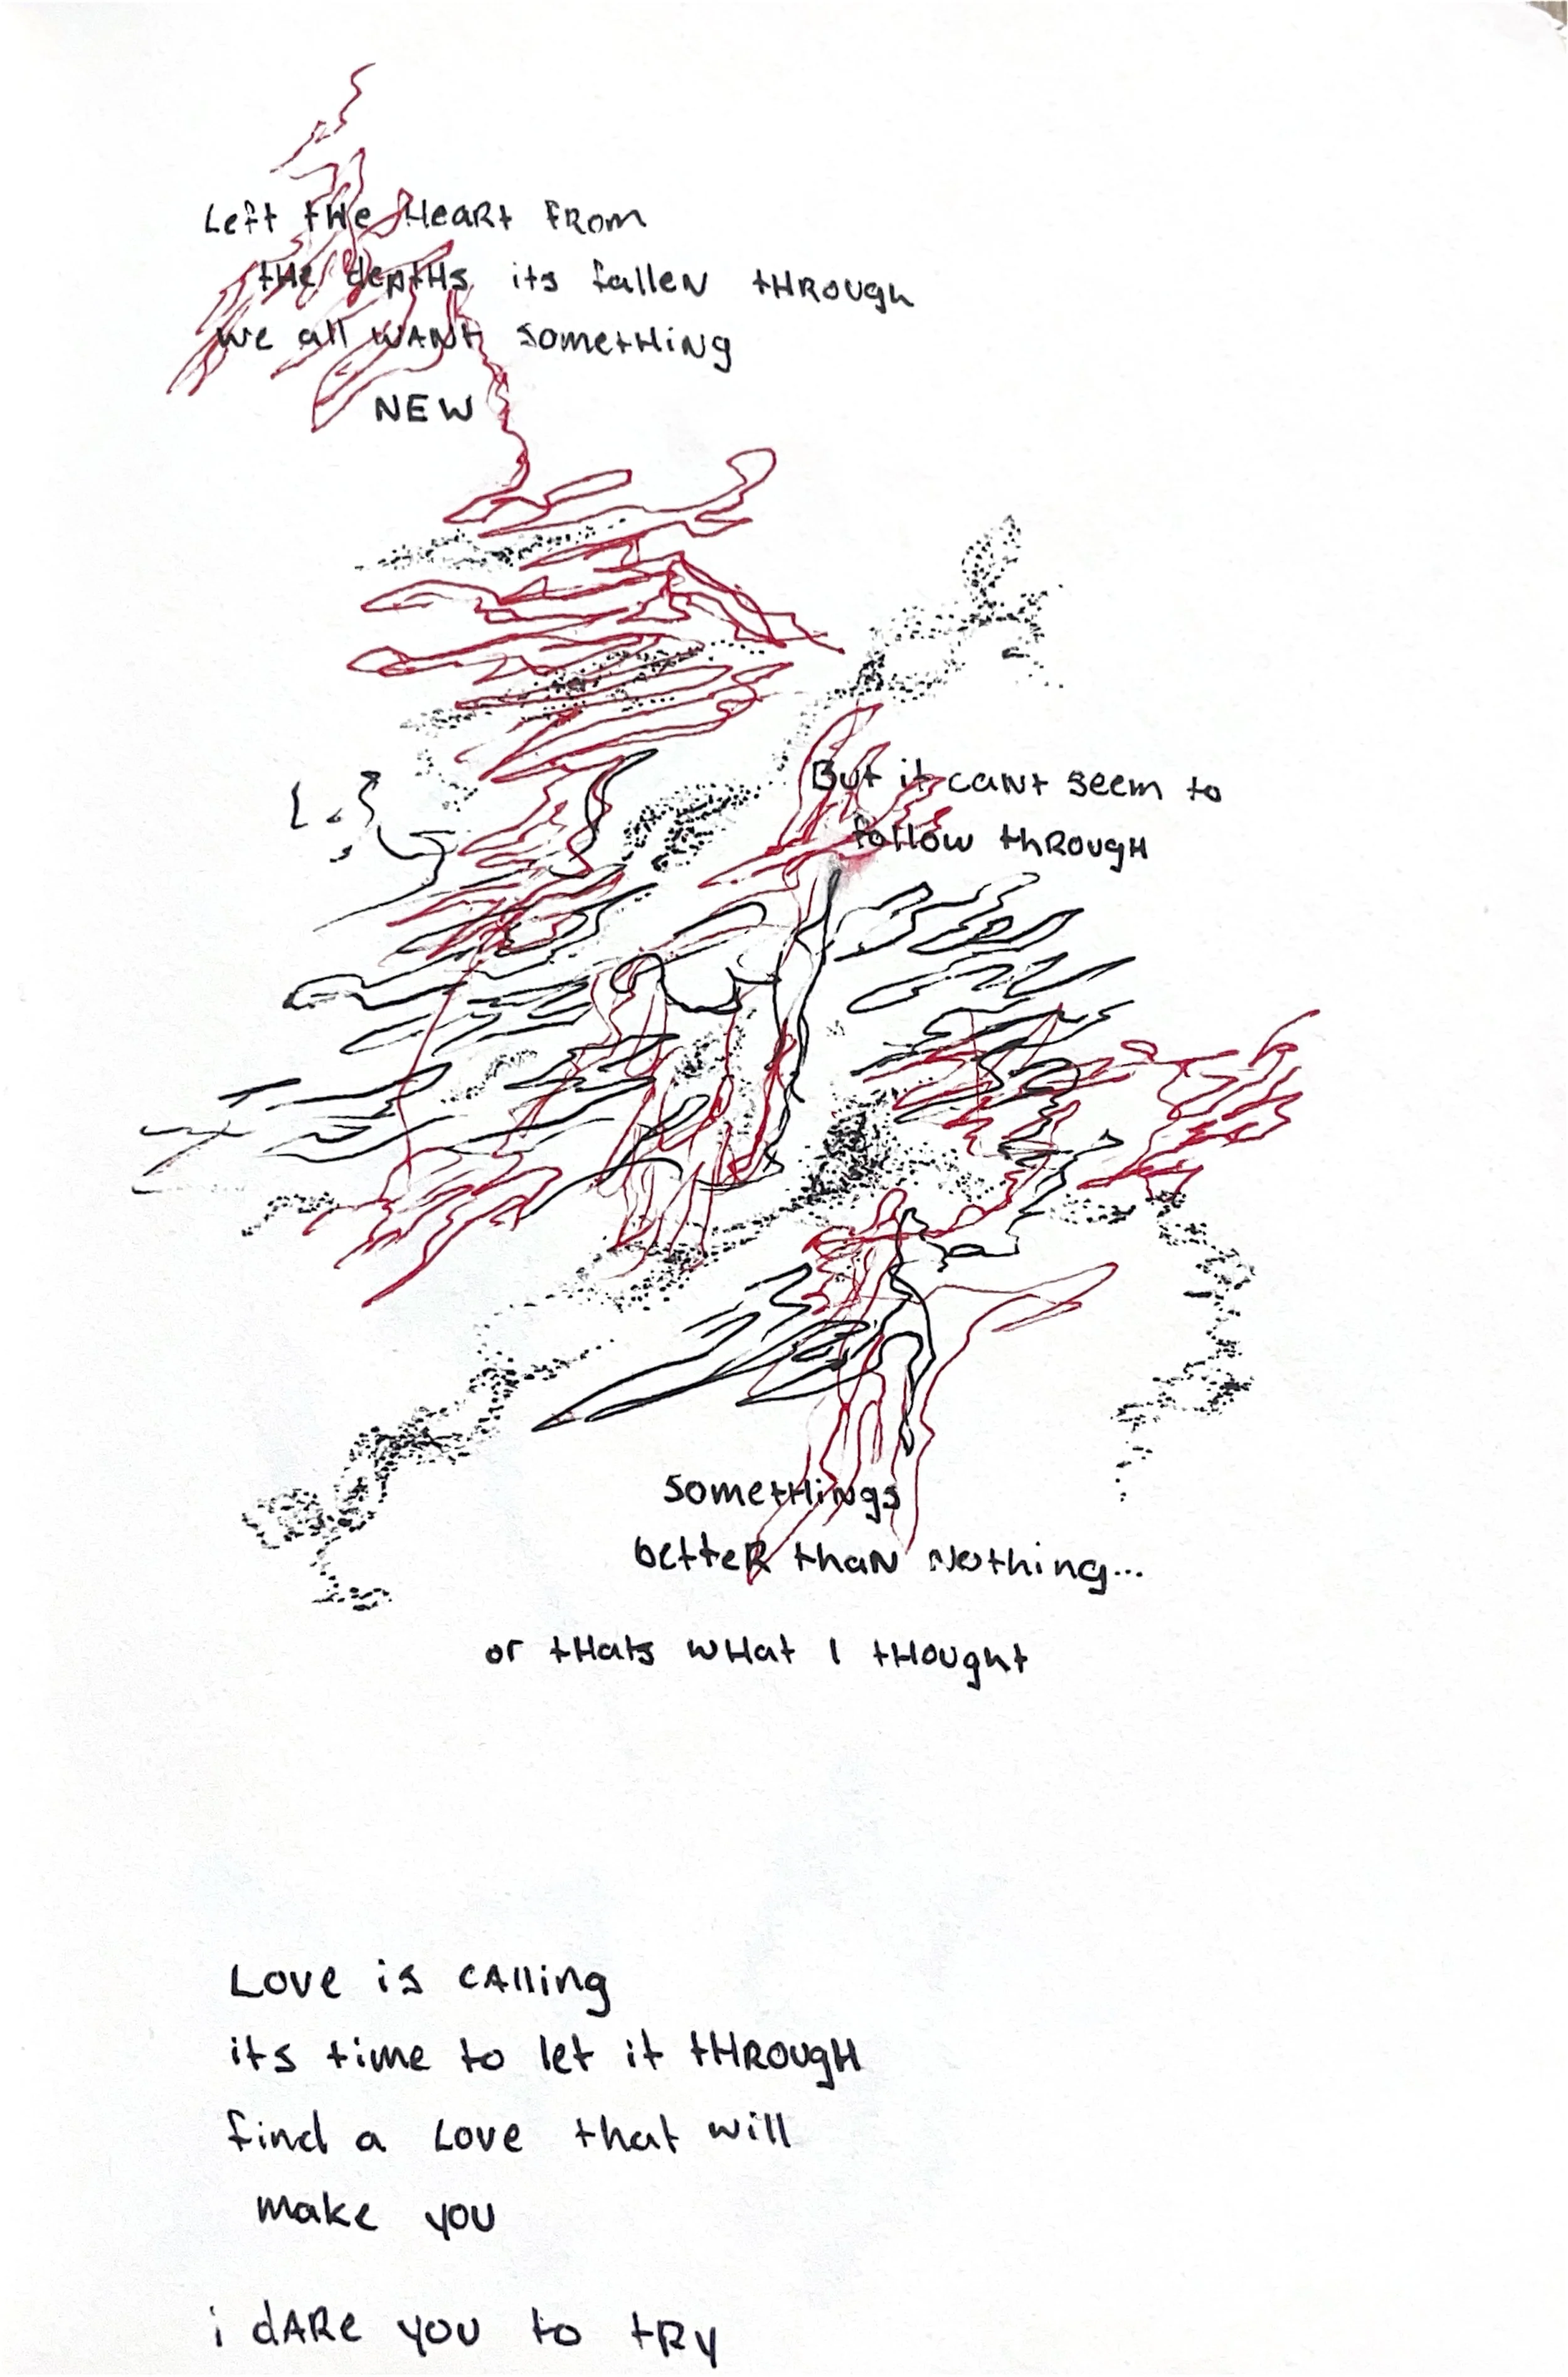 Left tHe HeaRt FRom
tHe deptHs its falleN tHROugh
we all WANt sometHiNg
NEW
But it caNt seem to
follow thROugH
sometHiNgs
betteR thaN Nothing...
or tHats wHat I tHougHt
Love is cAlling
its time to let it tHROugH
find a Love that will
make you
i dARe you to tRy